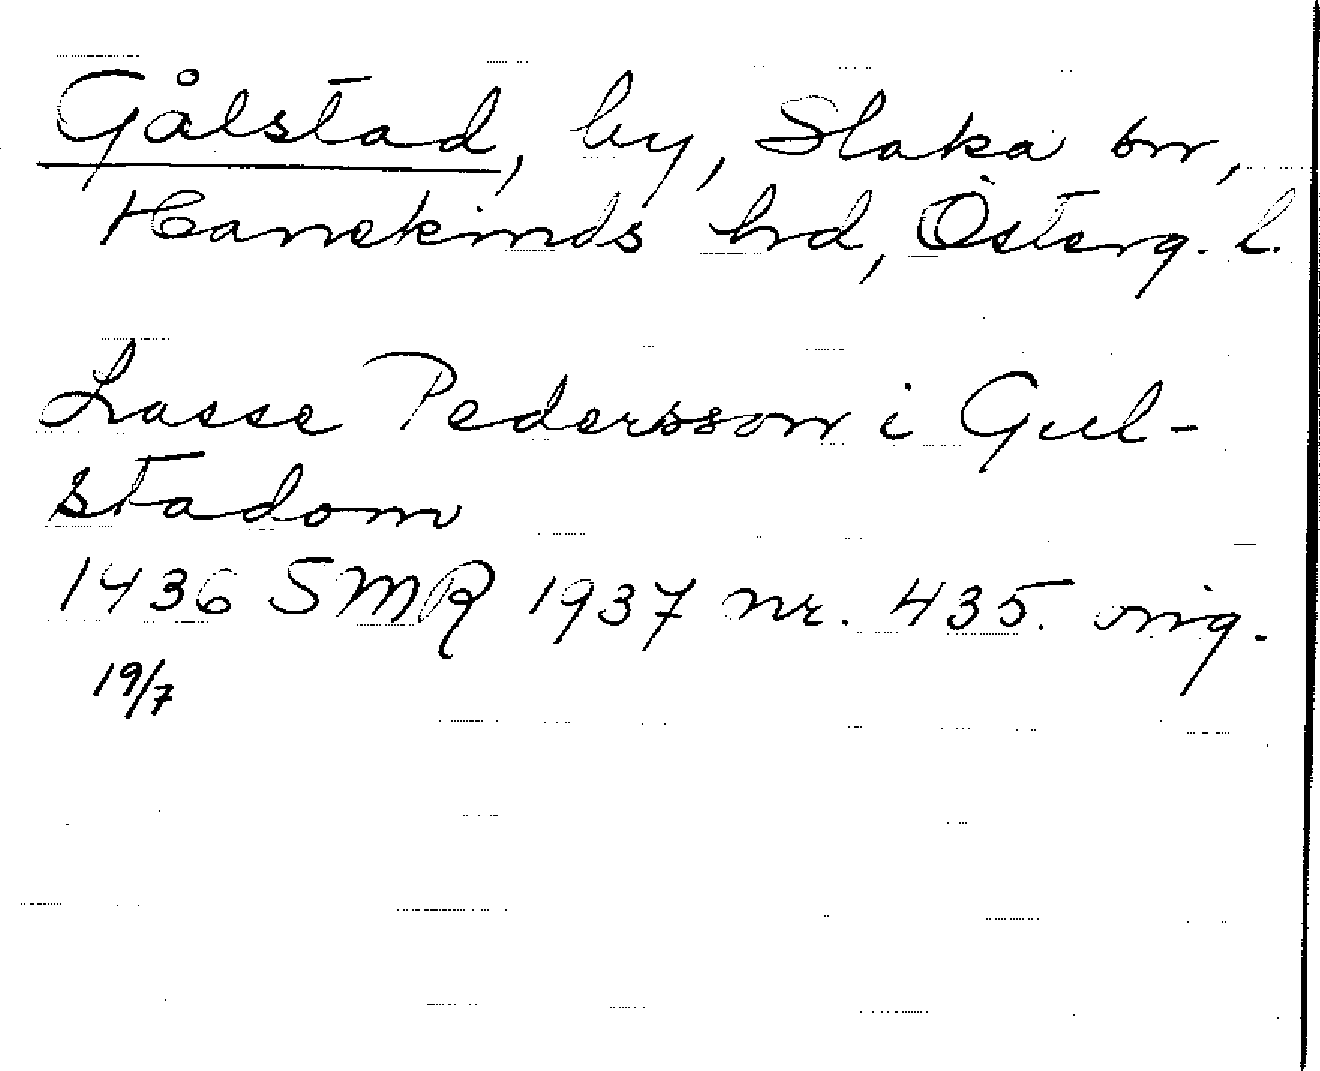 Gålstad, by, Slaka sn,
Hanekinds hrd, Österg. l.
Lasse Pedersson i Gul-
stadom
1436 SMR 1937 nr. 435. orig.
19/7